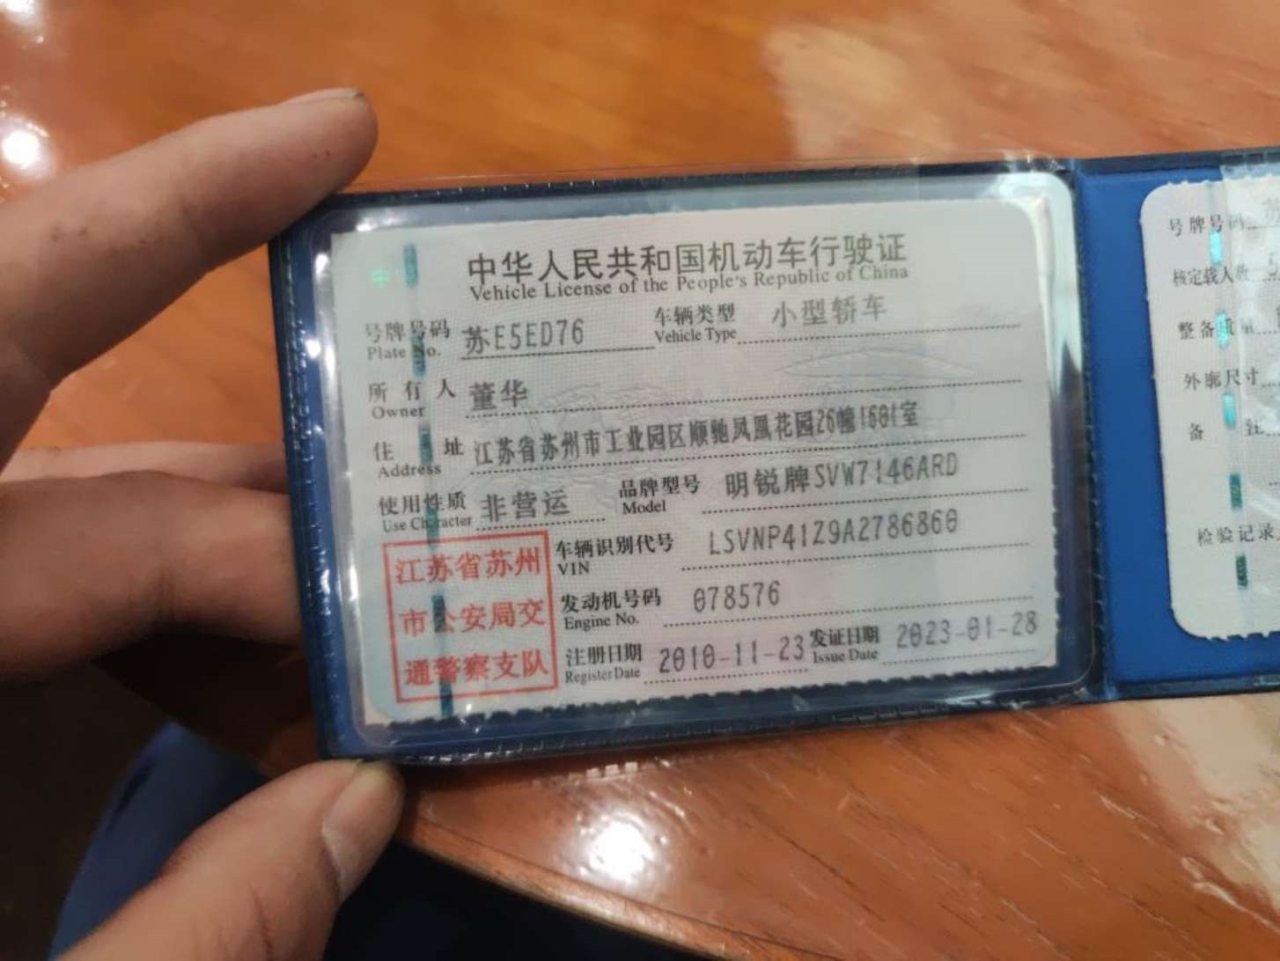 中华人民共和国机动车行驶证
Vehicle License of the People's Republic of China
号牌号码 苏E5ED76 车辆类型 小型轿车
Plate No. Vehicle Type
所有人 董华
Owner
住址 江苏省苏州市工业园区顺驰凤凰花园26幢1601室
Address
使用性质 非营运 品牌型号 明锐牌SVW7146ARD
Use Character Model
江苏省苏州
市公安局交
通警察支队
车辆识别代号 LSVNP41Z9A2786860
VIN
发动机号码 078576
Engine No.
注册日期 2010-11-23 发证日期 2023-01-28
Register Date Issue Date
号牌号码 苏
核定载人数
整备质量
外廓尺寸
备
检验记录